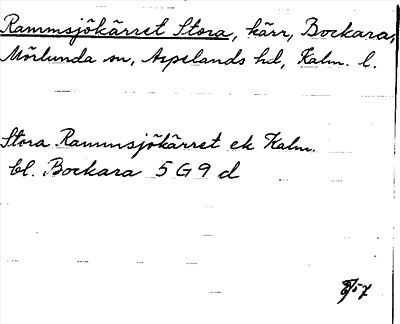 Rammsjökärret Stora, kärr, Bockara,
Mörlunda sn, Aspelands hd, Kalm. l.
Stora Rammsjökärret ek Kalm.
bl. Bockara 5 G 9 d